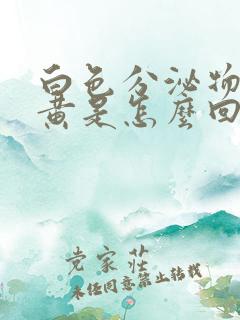 白色分泌物
黄是怎麼回
党家莊
未经同意禁止转载